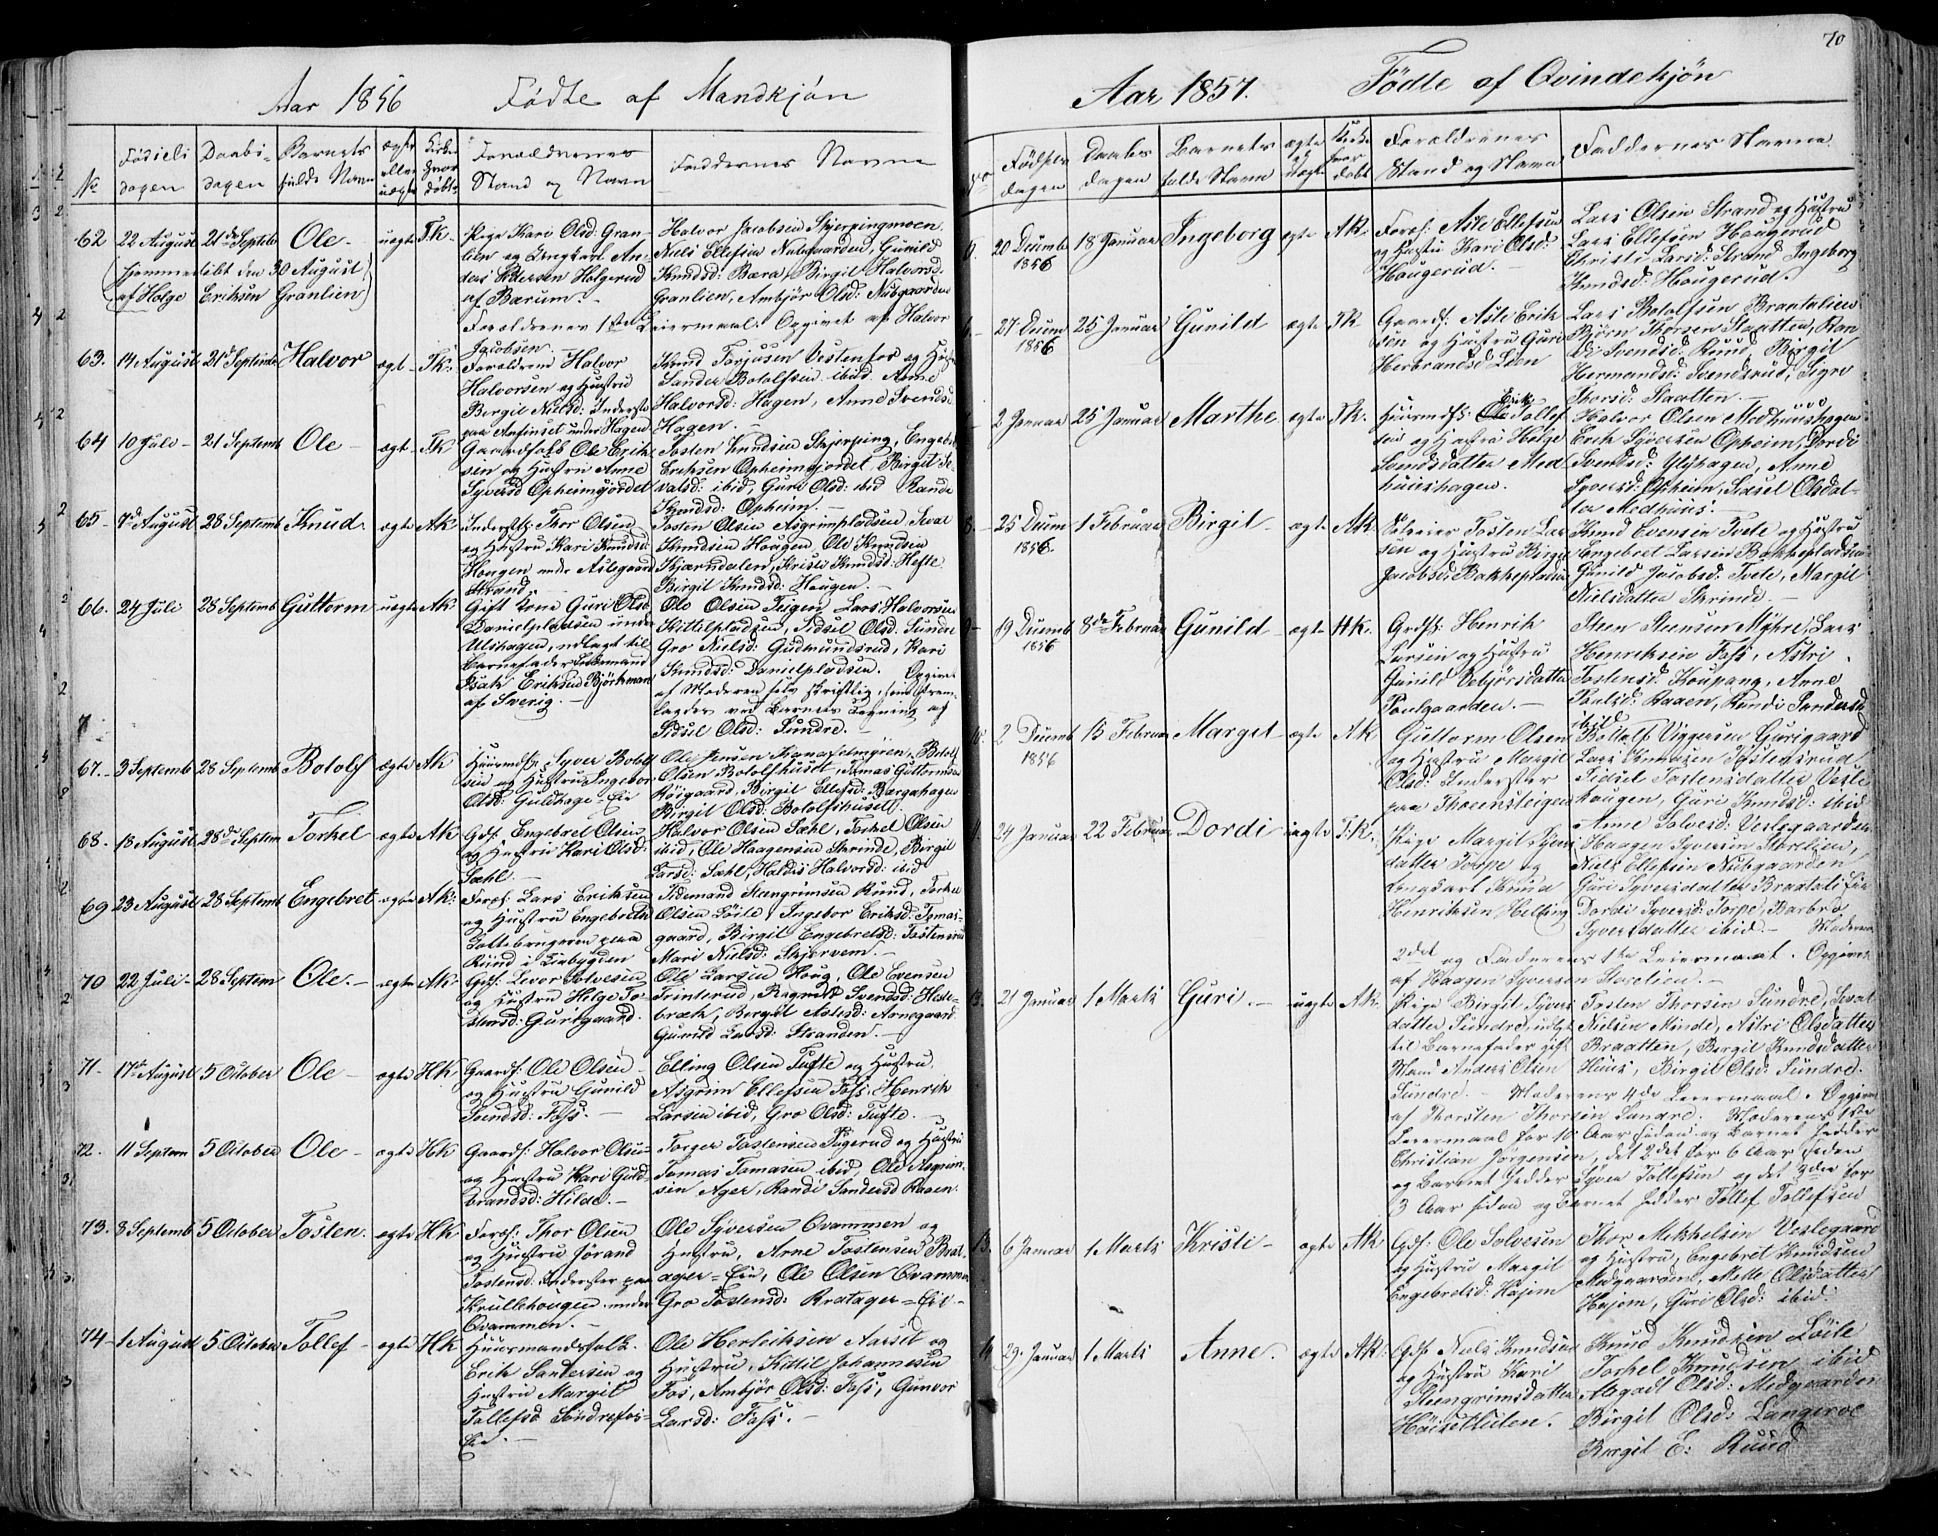 Aar 1856 Fødte af Mandkjøn
No
Barnets fulde Navn
Forældrenes Stand og Navn
Faddernes Navne
62 22 August 21de Septeb Ole uægte T.k.
Pige Kari Olsd: Gran-
lien og Ungkarl An-
ders Pedersen Holgerud
af Bærum.
Halvor Jacobsen Skjerpingmoen
Niels Ellefsen Nubgaarden, Gunild
Knudsd: Bæra, Birgit Halvorsd:
Granlien, Ambjør Olsd: Nubgaarden
(hjemmedøbt den 30 August
af Holge Eriksen Granlien)
Forældrenes 1ste Leiermaal. Opgivet af Halvor
Jacobsen
63. 14 August 21de Septembr Halvor ægt T.k.
Forældrene Halvor
Halvorsen og Hustru
Birgit Nielsd: Inderste
paa Anfinset under Hagen
Knud Torjusen Vestenfor og Hustru
Sander Botolfsen ibid. Anne
Halvorsd: Hagen, Anne Svendsd
Hagen.
64 10 Juli 21 Septemb Ole ægt T.k
Gaardfolk Ole Erik-
sen og Hustru Anne
Syversd Opheimsjordet
Tosten Knudsen Skjerping, Engebr
Eriksen Opheimsjordet Birgit Se-
valsd: ibid, Guri Olsd: ibid Rande
Opheim.
65 7d August 28 Septemb Knud ægte A.k
Inderstf: Thor Olsen
og Hustru Kari Knudsd:
Haugen under Aslegaard
Strand
Tosten Olsen Asgrimpladsen, Seval
Knudsen Haugen Ole Knudsen
Kjærnsdalen, Kristi Knudsd: Hefte
Birgit Knudsd: Haugen.
66. 24 Juli 28 Septemb Guttorm uægte A.k
Gift Kone Guri Olsd
Danielpladsen under
Ulshagen, udlagt til
Barnefader
Isak Eriksen Björkman
af Sverig.
Ole Olsen Teigen Lars Halvorsen
Kittilpladsen, Sidsel Olsd. Sundre
Gro Nielsd: Gudmundsrud, Kari
Knudsd: Danielpladsen. Opgivet
af Moderen selv skriftlig, som frem-
lagdes ved Barnets af
Sidsel Olsd: Sundre.
67. 3 Septemb 28 Septemb Botolf ægte A.k
Huusmdf: Syver Botolf
sen og Hustru Ingebor
Olsd: Guldhage-Eie
Ole Jensen Botolf
Olsen Botolfhuset, Tomas Guttormsen
Röisgaard, Birgit Ellefsd: Bergahagen
Birgit Olsd: Botolfshuset
68. 13 August 28de Septem Torkel ægte A.k
Gdf: Engebret Olsen
og Hustru Kari Olsd:
Sæhl.
Halvor Olsen Sæhl, Torkel Olsen
ibid, Ole Haagensen Skrinde, Birgit
Larsd: Sæhl, Haldis Halvorsd: ibid
69 23 August 28 Septemb Engebret ægte A.k:
Foræl: Lars Eriksen
og Hustru Engebret
paa
Ruud i
Tidemand Steingrimsen Ruud, Torkel
Olsen Löile, Ingebor Eriksd: Tomas-
gaard, Birgit Engebretsd: Tostensrud
Mari Nielsd: Skjervem.
70 22 Juli 28 Septem Ole ægte A.k:
Gdf: Levor Solvesen
og Hustru Helge To-
stensd: Gurigaard.
Ole Larsen Houg, Ole Evensen
Trinterud, Ragnild Svendsd: Hesle-
bræk, Birgit Aslesd: Arnegaard
Gunild Larsd: Stranden.
71. 17de August 5 October Ole ægte H.k
Gaardf: Ole Olsen
og Hustru Gunild
Svendsd: Foss.
Elling Olsen Tufte og Hustru,
Asgrim Ellefsen Foss, Henrik
Larsen ibid, Gro Olsd: Tufte.
72. 11 Septem 5 October Ole ægte H.k
Gaardf: Halvor Olsen
og Hustru Kari Guld-
brandsd: Hilde.
Torger Tostensen Tügerud og Hustru
Tomas Tomasen ibid, Ole Asgrim-
sen Ager, Randi Sandersd Raaen.
73. 8 Septemb 5 October Tosten ægte H.k
Foræl: Thor Olsen
og Hustru Jörand
Tostensd: Inderster paa
Krullehaugen under
Qvammen.
Ole Syversen Qvammen og
Hustru, Arne Tostensen Brat-
ager-Eie, Ole Olsen Qvammen
Gro Tostensd: Bratager-Eie
74 1 August 5 October Tollef ægte H.k
Huusmandsfolk.
Erik Sandersen og
Hustru Margit
Tollefsd Søndrefos-
Eie.
Ole Herleiksen Aarset og
Hustru, Kittil Johannesen
Fos, Ambjör Olsd: Foss, Gunvor
Larsd: Foss.
Aar 1857. Fødte af Qvindekjøn 70
Fødsels dagen
Daabs dagen
Barnets fulde Navn
Forældrenes Stand og Navn
Faddernes Navne
20 Decemb 1856 18 Januar Ingeborg ægte A.k:
Foræf: Asle Ellefsen
og Hustru Kari Olsd:
Haugerud.
Lars Olsen Strand og Hustru
Lars Ellefsen Haugerud
Christi Larsd: Strand Ingeborg
Knudsd: Haugerud.
27 Decem 1856 25 Januar Gunild ægte T.k
Gaardf: Asle Erik-
sen og Hustru Guri
Herbrandsd Lien
Lars Botolfsen Brantalien
Björn Thorsen Slaatten, Ran
di Svendsd: Ruud, Birgit
Hermandsd: Svendsrud, Sigri
Thorsd: Slaatten.
2 Januar 25 Januar Marthe ægte T.k.
Huusmdf: Erik Tollef
sen og Hustru Helge
Svendsdatter Med-
huushagen.
Halvor Olsen Medhuushagen
Erik Syversen Opheim, Dordi
Svendsd: Ulshagen, Anne
Syversd: Opheim, Sidsel Olsdat-
ter Medhuus.
8. 25 Decem 1856 1 Februar Birgit ægte A.k.
Selveier Tosten Lar
sen og Hustru Birgit
Jacobsd: Bakkepladsen
Knud Evensen Tveto og Hustru
Engebret Larsen Bakkepladsen
Gunild Jacobsd: Tveto, Margit
Nielsdatter Skrinde.
9 19 Decemb 1856 8de Februar Gunild ægte H.k.
Grdf: Henrik
Larsen og Hustru
Gunild Vebjörsdatter
Poulgaarden.
Sten Steensen Myhre, Lars
Henriksen Foss, Astri
Tostensd: Koupang, Anne
Poulsd: Raaen, Randi Sandersd
ibid
10. 2 Decemb 1856 15 Februar Margit ægte A.k
Guttorm Olsen
og Hustru Margit
Olsd: Inderster
paa Thoensteigen
Bottolf Viggersen Gurigaard
Lars Knudsen Tostensrud
Sidsel Tostensdatter Vesle-
haugen, Guri Knudsd: ibid
Anne Solvesd: Veslegaarden
11. 24 Januar 22 Februar Dordi uægte T.k:
Pige Margit Syvers
datter Torpe og
Ungkarl Knud
Henriksen Helling
Haagen Syversen Storelien,
Niels Ellefsen Nubgaarden
Guri Syversdatter Brantalien
Dordi Syversd: Torpe, Barbro
Syversdatter ibid. Moderens
2det og Faderens 1ste Leiermaal. Opgivet
af Haagen Syversen Storelien.
12. 21 Januar 1 Marts Guri. uægte A.k.
Pige Birgit Syvers
datter Sundre, udlagt
til Barnefader gift
Mand Anders Olsen
Sundre.
Tosten Thorsen Sundre, Seval
Nielsen Minde, Astri Olsdatter
Braatten, Birgit Knudsdatter
Huus, Birgit Olsd: Sundre.
Moderens 4de Leiermaal. Opgivet
af Thorsten Thorsen Sundre. Moderens 1ste
Leiermaal for 10 Aar siden og Barnet hedder
Christian Jörgensen, det 2det for 6 Aar siden
og Barnet hedder Syver Tollefsen og det 3die for
3 Aar siden og Barnet hedder Tollef Tollefsen
13. 6 Januar 1 Marts Kristi ægte A.k
Gdf: Ole Solvesen
og Hustru Margit
Engebretsd: Hojem
Thor Mikkelsen Veslegaard
og Hustru, Engebret Knudsen
Medgaarden, Mette Olsdatter
Hojem, Guri Olsd: ibid:
14 29. Januar 1 Marts Anne. ægte A.k:
Gdf: Niels Knudsen
og Hustru Kari
Steengrimsdatter
Höisetluten.
Knud Knudsen Löile
Torkel Knudsen ibid
Abgadt Olsd: Medgaarden
Birgit Olsd: Langeroe
Birgit E: Ruud